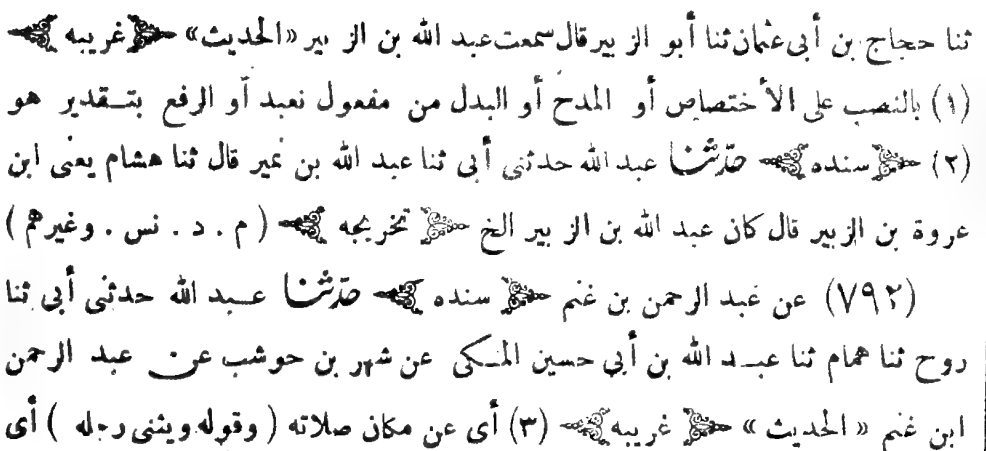 ثنا حجاج بن أبى عثمان ثنا أبو الزبير قال سمعت عبد الله بن الزبير «الحديث» غريبه
(١) بالنصب على الأختصاص أو المدح أو البدل من مفعول نعبد أو الرفع بتقدير هو
(٢) سنده حدّثنا عبد الله حدثنى أبى ثنا عبد الله بن نمير قال ثنا هشام يعنى ابن
عروة بن الزبير قال كان عبد الله بن الزبير الخ تخريجه (م . د . نس . وغيرهم)
(٧٩٢) عن عبد الرحمن بن غنم سنده حدّثنا عبد الله حدثنى أبى ثنا
روح ثنا همام ثنا عبد الله بن أبي حسين المكى عن شهر بن حوشب عن عبد الرحمن
ابن غنم « الحديث » غريبه (٣) أى عن مكان صلاته (وقوله ويثنى رجله) أى